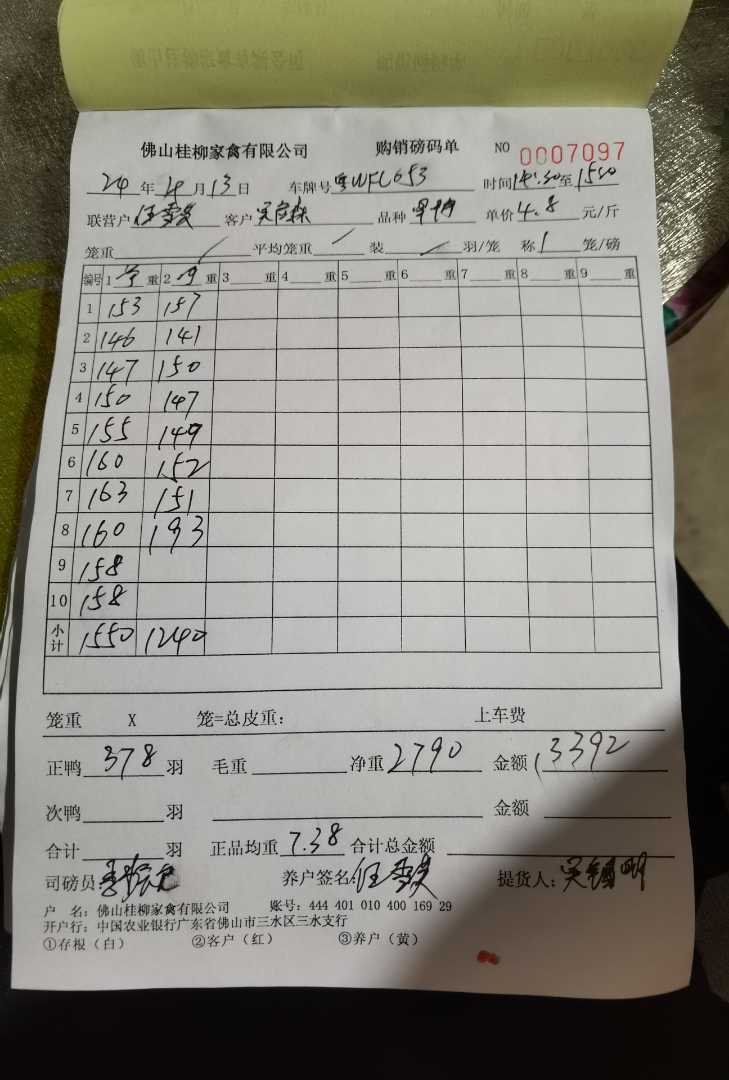 佛山桂柳家禽有限公司 购销磅码单 NO 0007097
24年4月13日 车牌号粤WFC653 时间14:30至1500
联营户 客户 品种 单价4.8元/斤
笼重 平均笼重 装 羽/笼 称1笼/磅
编号 1 重 2 重 3 重 4 重 5 重 6 重 7 重 8 重 9 重
1 153 157
2 146 141
3 147 150
4 150 147
5 155 149
6 160 152
7 163 151
8 160 193
9 158
10 158
小计 1550 1240
笼重 X 笼=总皮重: 上车费
正鸭 378 羽 毛重 净重 2790 金额 13392
次鸭 羽 金额
合计 羽 正品均重 7.38 合计总金额
司磅员: 养户签名: 提货人:
户 名: 佛山桂柳家禽有限公司 账号: 444 401 010 400 169 29
开户行: 中国农业银行广东省佛山市三水区三水支行
①存根（白） ②客户（红） ③养户（黄）